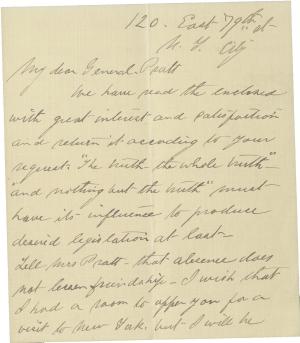 120. East 79th St
N. Y. City
My dear General Pratt
We have read the enclosed
with great interest and satisfaction
and return it according to your
request. "The truth - the whole truth" -
"and nothing but the truth" must
have its influence to produce
desired legislation at last -
Tell Mrs Pratt - that absence does
not lessen friendship - I wish that
I had a room to offer you for a
visit to New York. but I will be